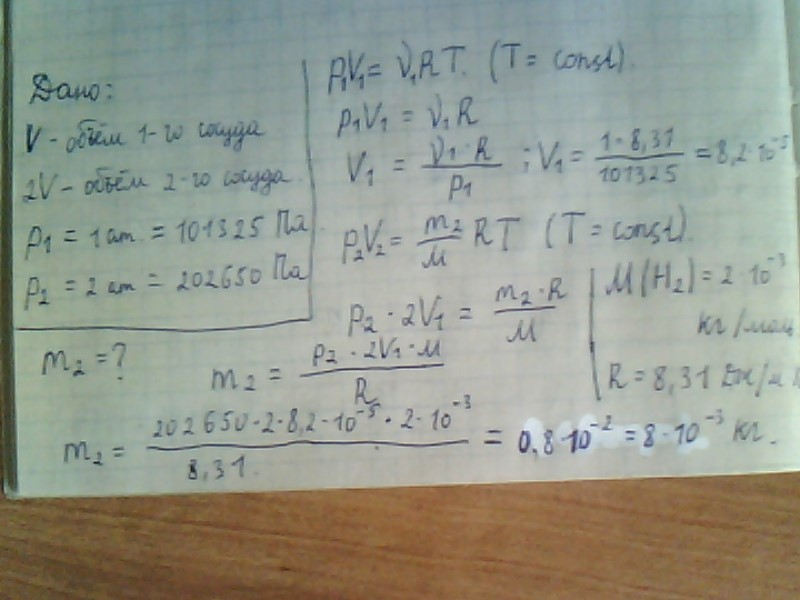 Дано:
V - объём 1-го сосуда
2V - объём 2-го сосуда
p₁ = 1 ат. = 101325 Па
p₂ = 2 ат = 202650 Па
m₂ = ?
p₁V₁ = ν₁RT. (T = const).
p₁V₁ = ν₁R
V₁ = ν₁·R / p₁ ; V₁ = 1·8,31 / 101325 = 8,2·10⁻⁵
p₂V₂ = m₂/M RT (T = const).
p₂·2V₁ = m₂·R / M
M(H₂) = 2·10⁻³
кг/мол
R = 8,31 Дж/м
m₂ = p₂·2V₁·M / R
m₂ = 202650·2·8,2·10⁻⁵·2·10⁻³ / 8,31. = 0,8·10⁻² = 8·10⁻³ кг.